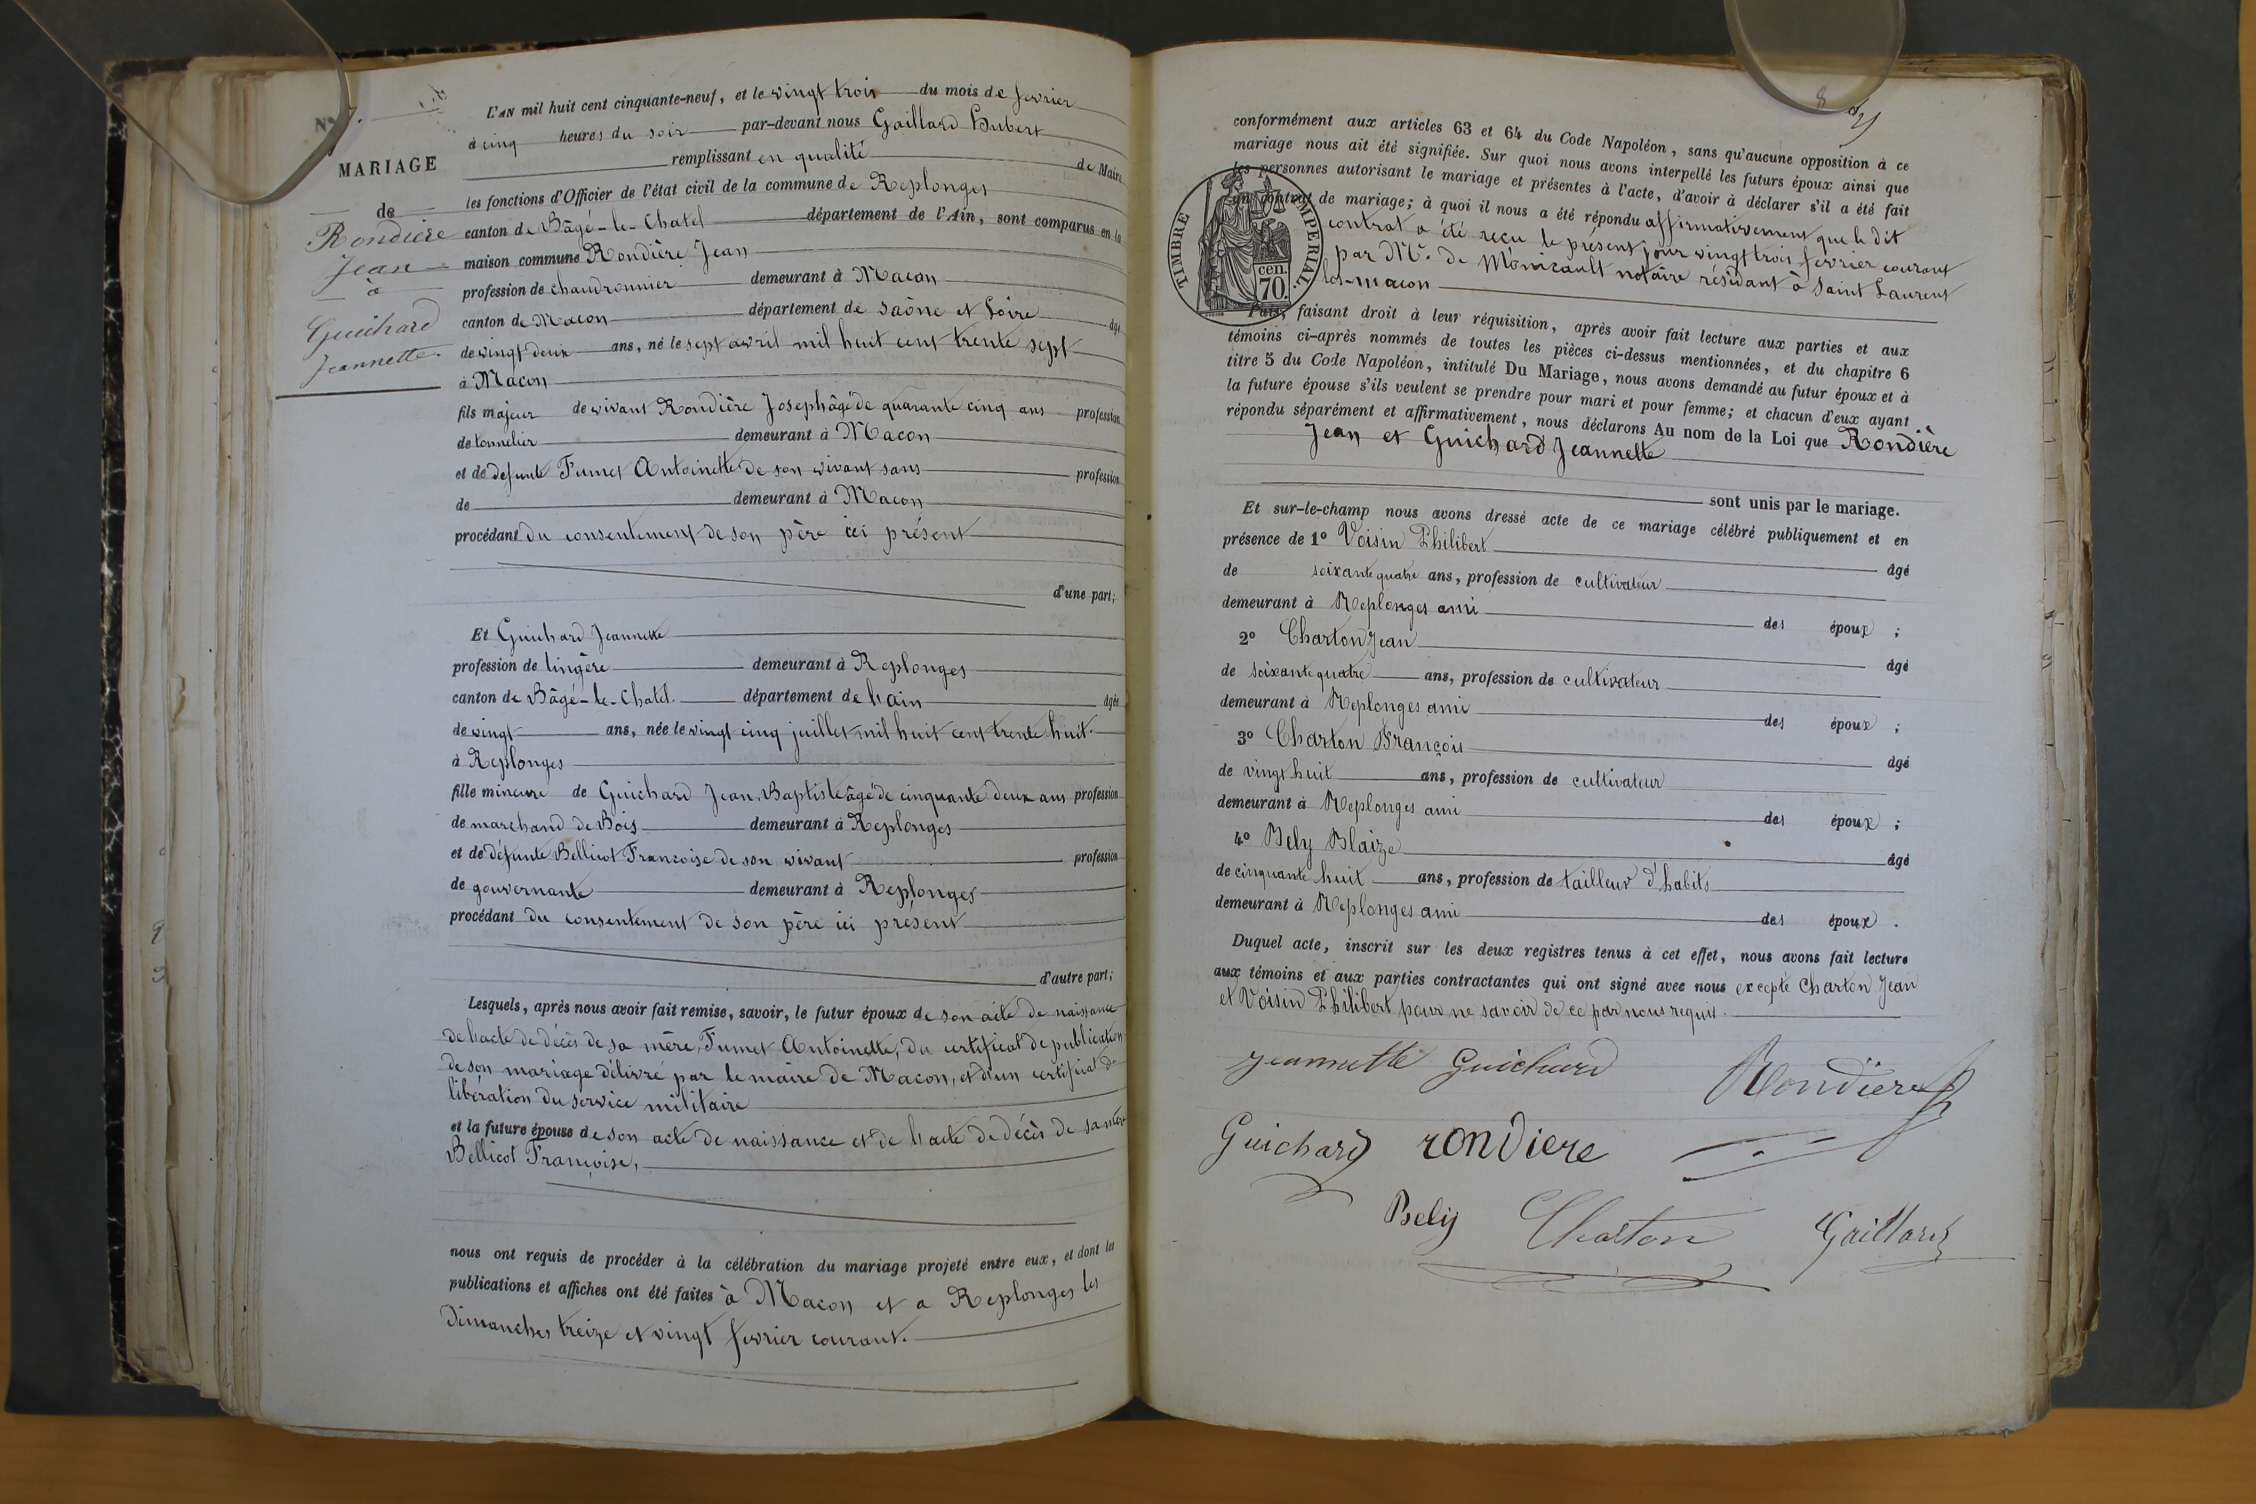 N° 7.
MARIAGE
de
Rondière
Jean
à
Guichard
Jeannette.
L'AN mil huit cent cinquante-neuf, et le vingt trois du mois de fevrier
à cinq heures du soir par-devant nous Gaillard Hubert
remplissant en qualité de Maire
les fonctions d'Officier de l'état civil de la commune de Replonges
canton de Bâgé-le-Chatel département de l'Ain, sont comparus en la
maison commune Rondière Jean
profession de chaudronnier demeurant à Macon
canton de Macon département de Saône et Loire âgé
de vingt deux ans, né le sept avril mil huit cent trente sept
à Macon
fils majeur de vivant Rondière Joseph âgé de quarante cinq ans profession
de tonnelier demeurant à Macon
et de defunte Fumet Antoinette de son vivant sans profession
de demeurant à Macon
procédant du consentement de son père ici présent
d'une part;
Et Guichard Jeannette
profession de lingère demeurant à Replonges
canton de Bâgé-le-Chatel. département de l'ain âgée
de vingt ans, née le vingt cinq juillet mil huit cent trente huit.
à Replonges
fille mineure de Guichard Jean Baptiste âgé de cinquante deux ans profession
de marchand de Bois demeurant à Replonges
et de défunte Bellicot Francoise de son vivant profession
de gouvernante demeurant à Replonges
procédant du consentement de son père ici présent
d'autre part;
Lesquels, après nous avoir fait remise, savoir, le futur époux de son acte de naissance
de l'acte de décès de sa mère, Fumet Antoinette, du certificat de publication
de son mariage délivré par le maire de Macon, et d'un certificat de
libération du service militaire
et la future épouse de son acte de naissance et de l'acte de décès de sa mère
Bellicot Françoise,
nous ont requis de procéder à la célébration du mariage projeté entre eux, et dont les
publications et affiches ont été faites à Macon et a Replonges les
Dimanches treize et vingt fevrier courant.
8
conformément aux articles 63 et 64 du Code Napoléon, sans qu'aucune opposition à ce
mariage nous ait été signifiée. Sur quoi nous avons interpellé les futurs époux ainsi que
les personnes autorisant le mariage et présentes à l'acte, d'avoir à déclarer s'il a été fait
un contrat de mariage; à quoi il nous a été répondu affirmativement que le dit
contrat a été reçu le présent jour vingt trois fevrier courant
par Me. de Monicault notaire résidant à Saint Laurent
les-macon
TIMBRE IMPERIAL.
cen.
70.
Puis, faisant droit à leur réquisition, après avoir fait lecture aux parties et aux
témoins ci-après nommés de toutes les pièces ci-dessus mentionnées, et du chapitre 6
titre 5 du Code Napoléon, intitulé Du Mariage, nous avons demandé au futur époux et à
la future épouse s'ils veulent se prendre pour mari et pour femme; et chacun d'eux ayant
répondu séparément et affirmativement, nous déclarons Au nom de la Loi que Rondière
Jean et Guichard Jeannette
sont unis par le mariage.
Et sur-le-champ nous avons dressé acte de ce mariage célébré publiquement et en
présence de 1° Voisin Philibert âgé
de soixante quatre ans, profession de cultivateur
demeurant à Replonges ami des époux ;
2° Charton Jean âgé
de soixante quatre ans, profession de cultivateur
demeurant à Replonges ami des époux ;
3° Charton François âgé
de vingt huit ans, profession de cultivateur
demeurant à Replonges ami des époux ;
4° Bely Blaize âgé
de cinquante huit ans, profession de tailleur d'habits
demeurant à Replonges ami des époux .
Duquel acte, inscrit sur les deux registres tenus à cet effet, nous avons fait lecture
aux témoins et aux parties contractantes qui ont signé avec nous excepté Charton Jean
et Voisin Philibert pour ne savoir de ce par nous requis.
Jeannette Guichard Rondière
Guichard rondiere
Bely Charton Gaillard